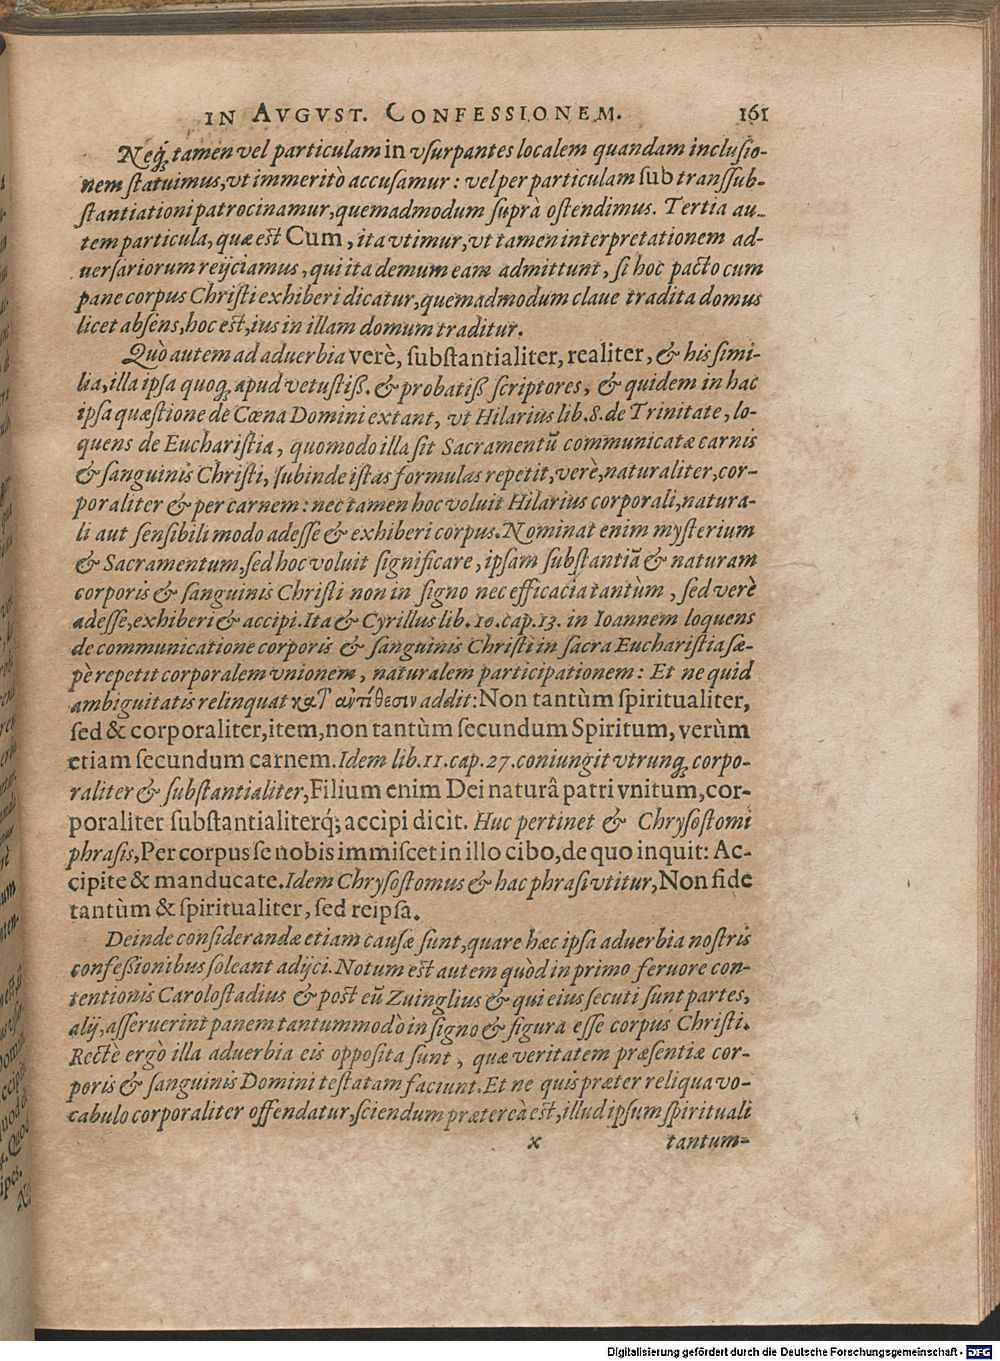 IN AVGVST. CONFESSIONEM. 161
Neq́; tamen vel particulam in vsurpantes localem quandam inclusio-
nem statuimus, vt immeritò accusamur: vel per particulam sub transsub-
stantiationi patrocinamur, quemadmodum suprà ostendimus. Tertia au-
tem particula, quæ est Cum, ita vtimur, vt tamen interpretationem ad-
uersariorum reijciamus, qui ita demum eam admittunt, si hoc pacto cum
pane corpus Christi exhiberi dicatur, quemadmodum claue tradita domus
licet absens, hoc est, ius in illam domum traditur.
Quò autem ad aduerbia verè, substantialiter, realiter, & his simi-
lia, illa ipsa quoq; apud vetustiß. & probatiß scriptores, & quidem in hac
ipsa quæstione de Cœna Domini extant, vt Hilarius lib. 8. de Trinitate, lo-
quens de Eucharistia, quomodo illa sit Sacramentū communicatæ carnis
& sanguinis Christi, subinde istas formulas repetit, verè, naturaliter, cor-
poraliter & per carnem: nec tamen hoc voluit Hilarius corporali, natura-
li aut sensibili modo adesse & exhiberi corpus. Nominat enim mysterium
& Sacramentum, sed hoc voluit significare, ipsam substantiā & naturam
corporis & sanguinis Christi non in signo nec efficacia tantùm, sed verè
adesse, exhiberi & accipi. Ita & Cyrillus lib. 10. cap. 13. in Ioannem loquens
de communicatione corporis & sanguinis Christi in sacra Eucharistia sæ-
pè repetit corporalem vnionem, naturalem participationem: Et ne quid
ambiguitatis relinquat κατ' ἀντίθεσιν addit: Non tantùm spiritualiter,
sed & corporaliter, item, non tantùm secundum Spiritum, verùm
etiam secundum carnem. Idem lib. 11. cap. 27. coniungit vtrunq; corpo-
raliter & substantialiter, Filium enim Dei naturâ patri vnitum, cor-
poraliter substantialiterq́; accipi dicit. Huc pertinet & Chrysostomi
phrasis, Per corpus se nobis immiscet in illo cibo, de quo inquit: Ac-
cipite & manducate. Idem Chrysostomus & hac phrasi vtitur, Non fide
tantùm & spiritualiter, sed reipsa.
Deinde considerandæ etiam causæ sunt, quare hæc ipsa aduerbia nostris
confeßionibus soleant adijci. Notum est autem quòd in primo feruore con-
tentionis Carolostadius & post eū Zuinglius & qui eius secuti sunt partes,
alij, asseruerint panem tantummodò in signo & figura esse corpus Christi.
Rectè ergò illa aduerbia eis opposita sunt, quæ veritatem præsentiæ cor-
poris & sanguinis Domini testatam faciunt. Et ne quis præter reliqua vo-
cabulo corporaliter offendatur, sciendum prætereà est, illud ipsum spirituali
x tantum=
Digitalisierung gefördert durch die Deutsche Forschungsgemeinschaft - DFG